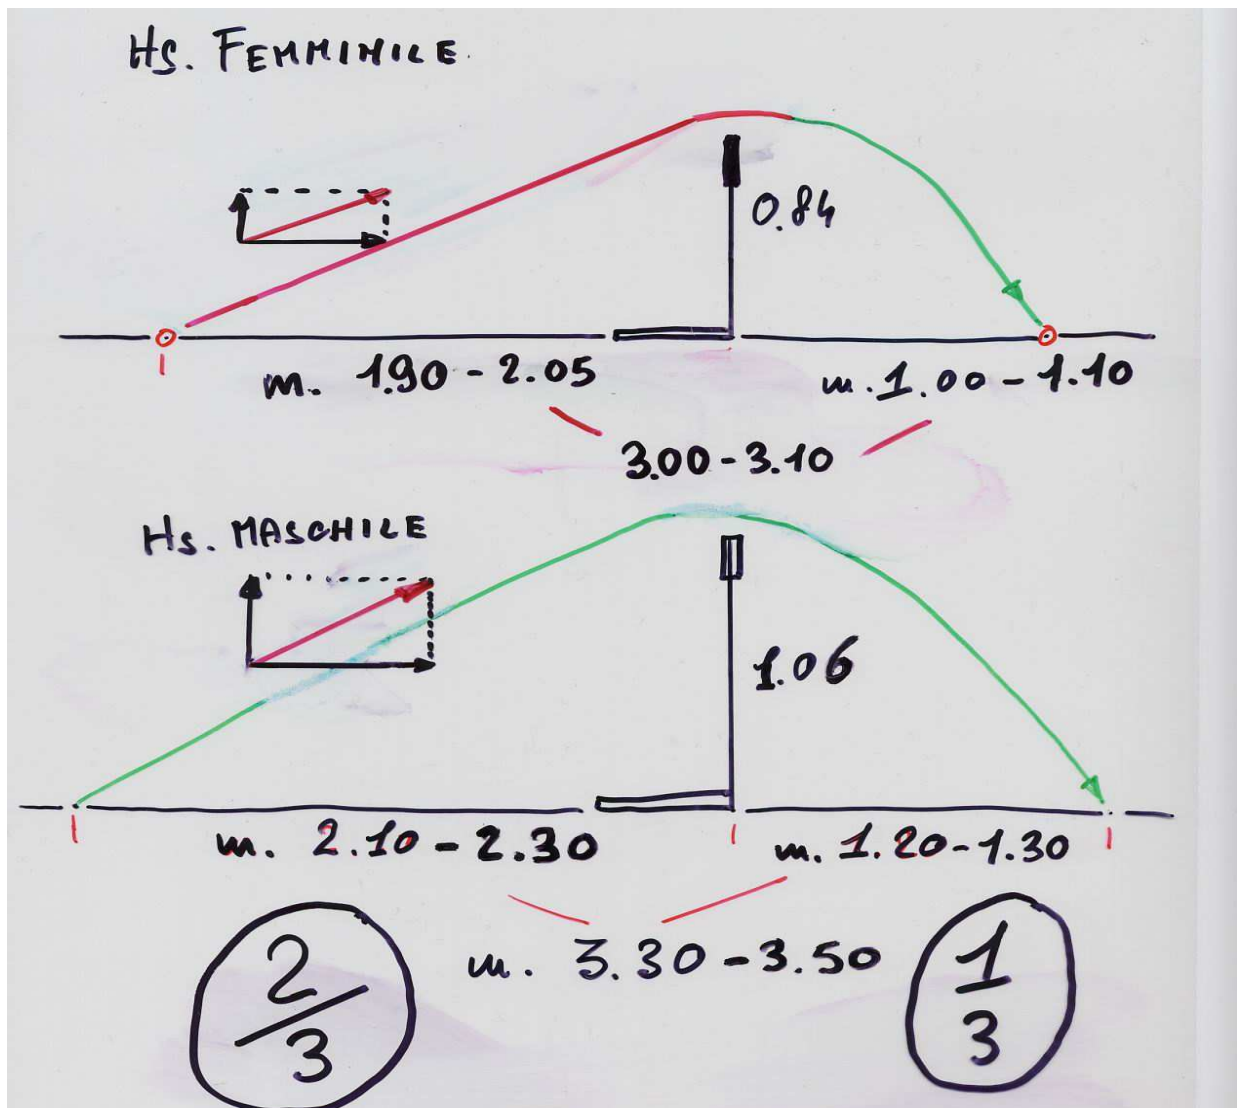 Hs. FEMMINILE
0.84
m. 1.90 - 2.05
m. 1.00 - 1.10
3.00 - 3.10
Hs. MASCHILE
1.06
m. 2.10 - 2.30
m. 1.20 - 1.30
m. 3.30 - 3.50
2/3
1/3